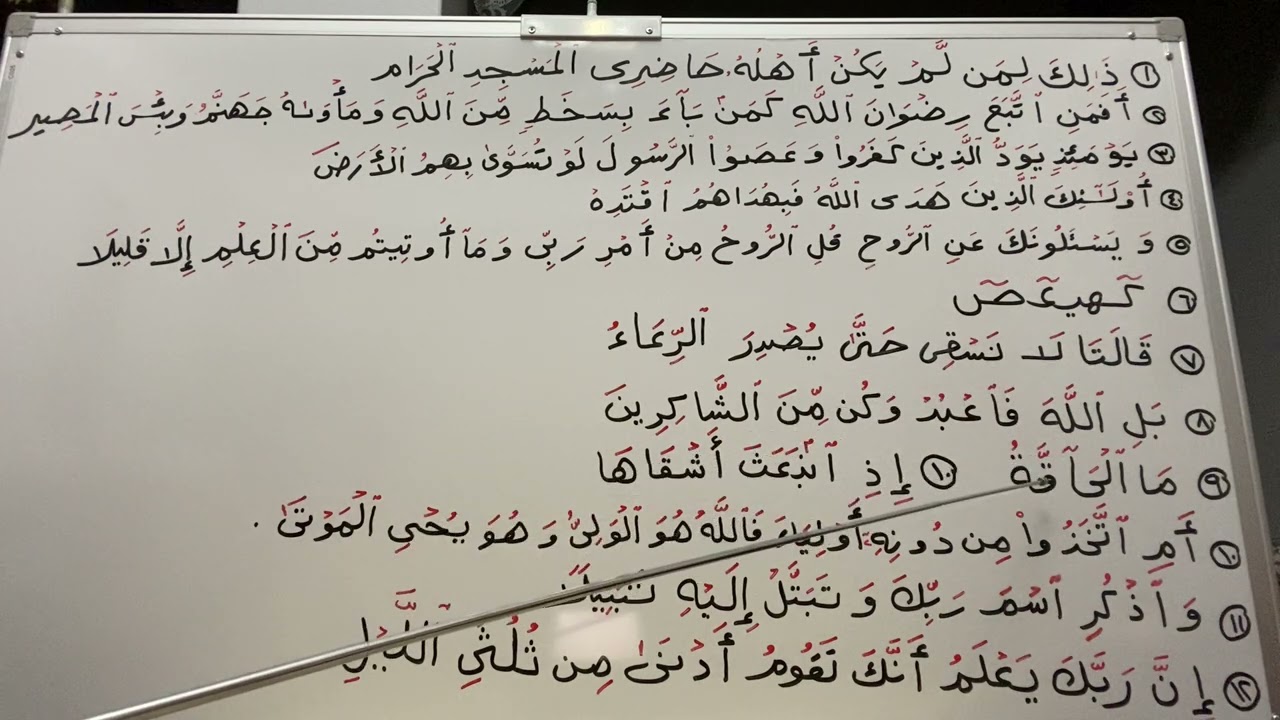 ١ ذَٰلِكَ لِمَن لَّمْ يَكُنْ أَهْلُهُۥ حَاضِرِى ٱلْمَسْجِدِ ٱلْحَرَامِ
٢ أَفَمَنِ ٱتَّبَعَ رِضْوَانَ ٱللَّهِ كَمَنۢ بَآءَ بِسَخَطٍ مِّنَ ٱللَّهِ وَمَأْوَىٰهُ جَهَنَّمُ وَبِئْسَ ٱلْمَصِير
٣ يَوْمَئِذٍ يَوَدُّ ٱلَّذِينَ كَفَرُوا۟ وَعَصَوُا۟ ٱلرَّسُولَ لَوْ تُسَوَّىٰ بِهِمُ ٱلْأَرْضَ
٤ أُو۟لَـٰٓئِكَ ٱلَّذِينَ هَدَى ٱللَّهُ فَبِهُدَاهُمُ ٱقْتَدِهْ
٥ وَيَسْـَٔلُونَكَ عَنِ ٱلرُّوحِ قُلِ ٱلرُّوحُ مِنْ أَمْرِ رَبِّى وَمَآ أُوتِيتُم مِّنَ ٱلْعِلْمِ إِلَّا قَلِيلًا
٦ كٓهيعٓصٓ
٧ قَالَتَا لَا نَسْقِى حَتَّىٰ يُصْدِرَ ٱلرِّعَاءُ
٨ بَلِ ٱللَّهَ فَٱعْبُدْ وَكُن مِّنَ ٱلشَّاكِرِينَ
٩ مَا ٱلْحَآقَّةُ ١٠ إِذِ ٱنۢبَعَثَ أَشْقَاهَا
١٠ أَمِ ٱتَّخَذُوا۟ مِن دُونِهِۦٓ أَوْلِيَآءَ فَٱللَّهُ هُوَ ٱلْوَلِىُّ وَهُوَ يُحْىِ ٱلْمَوْتَىٰ .
١١ وَٱذْكُرِ ٱسْمَ رَبِّكَ وَتَبَتَّلْ إِلَيْهِ تَبْتِيلًا
١٢ إِنَّ رَبَّكَ يَعْلَمُ أَنَّكَ تَقُومُ أَدْنَىٰ مِن ثُلُثَىِ ٱلَّيْلِ